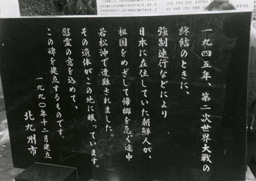 一九四五年、第二次世界大戦の
終結のときに、
強制連行などにより
日本に在住していた朝鮮人が、
祖国をめざして帰郷を急ぐ途中
若松沖で遭難されました。
その遺体がこの地に眠っています。
慰霊の意を込めて、
この碑を建立するものです。
一九九〇年十二月建立
北九州市